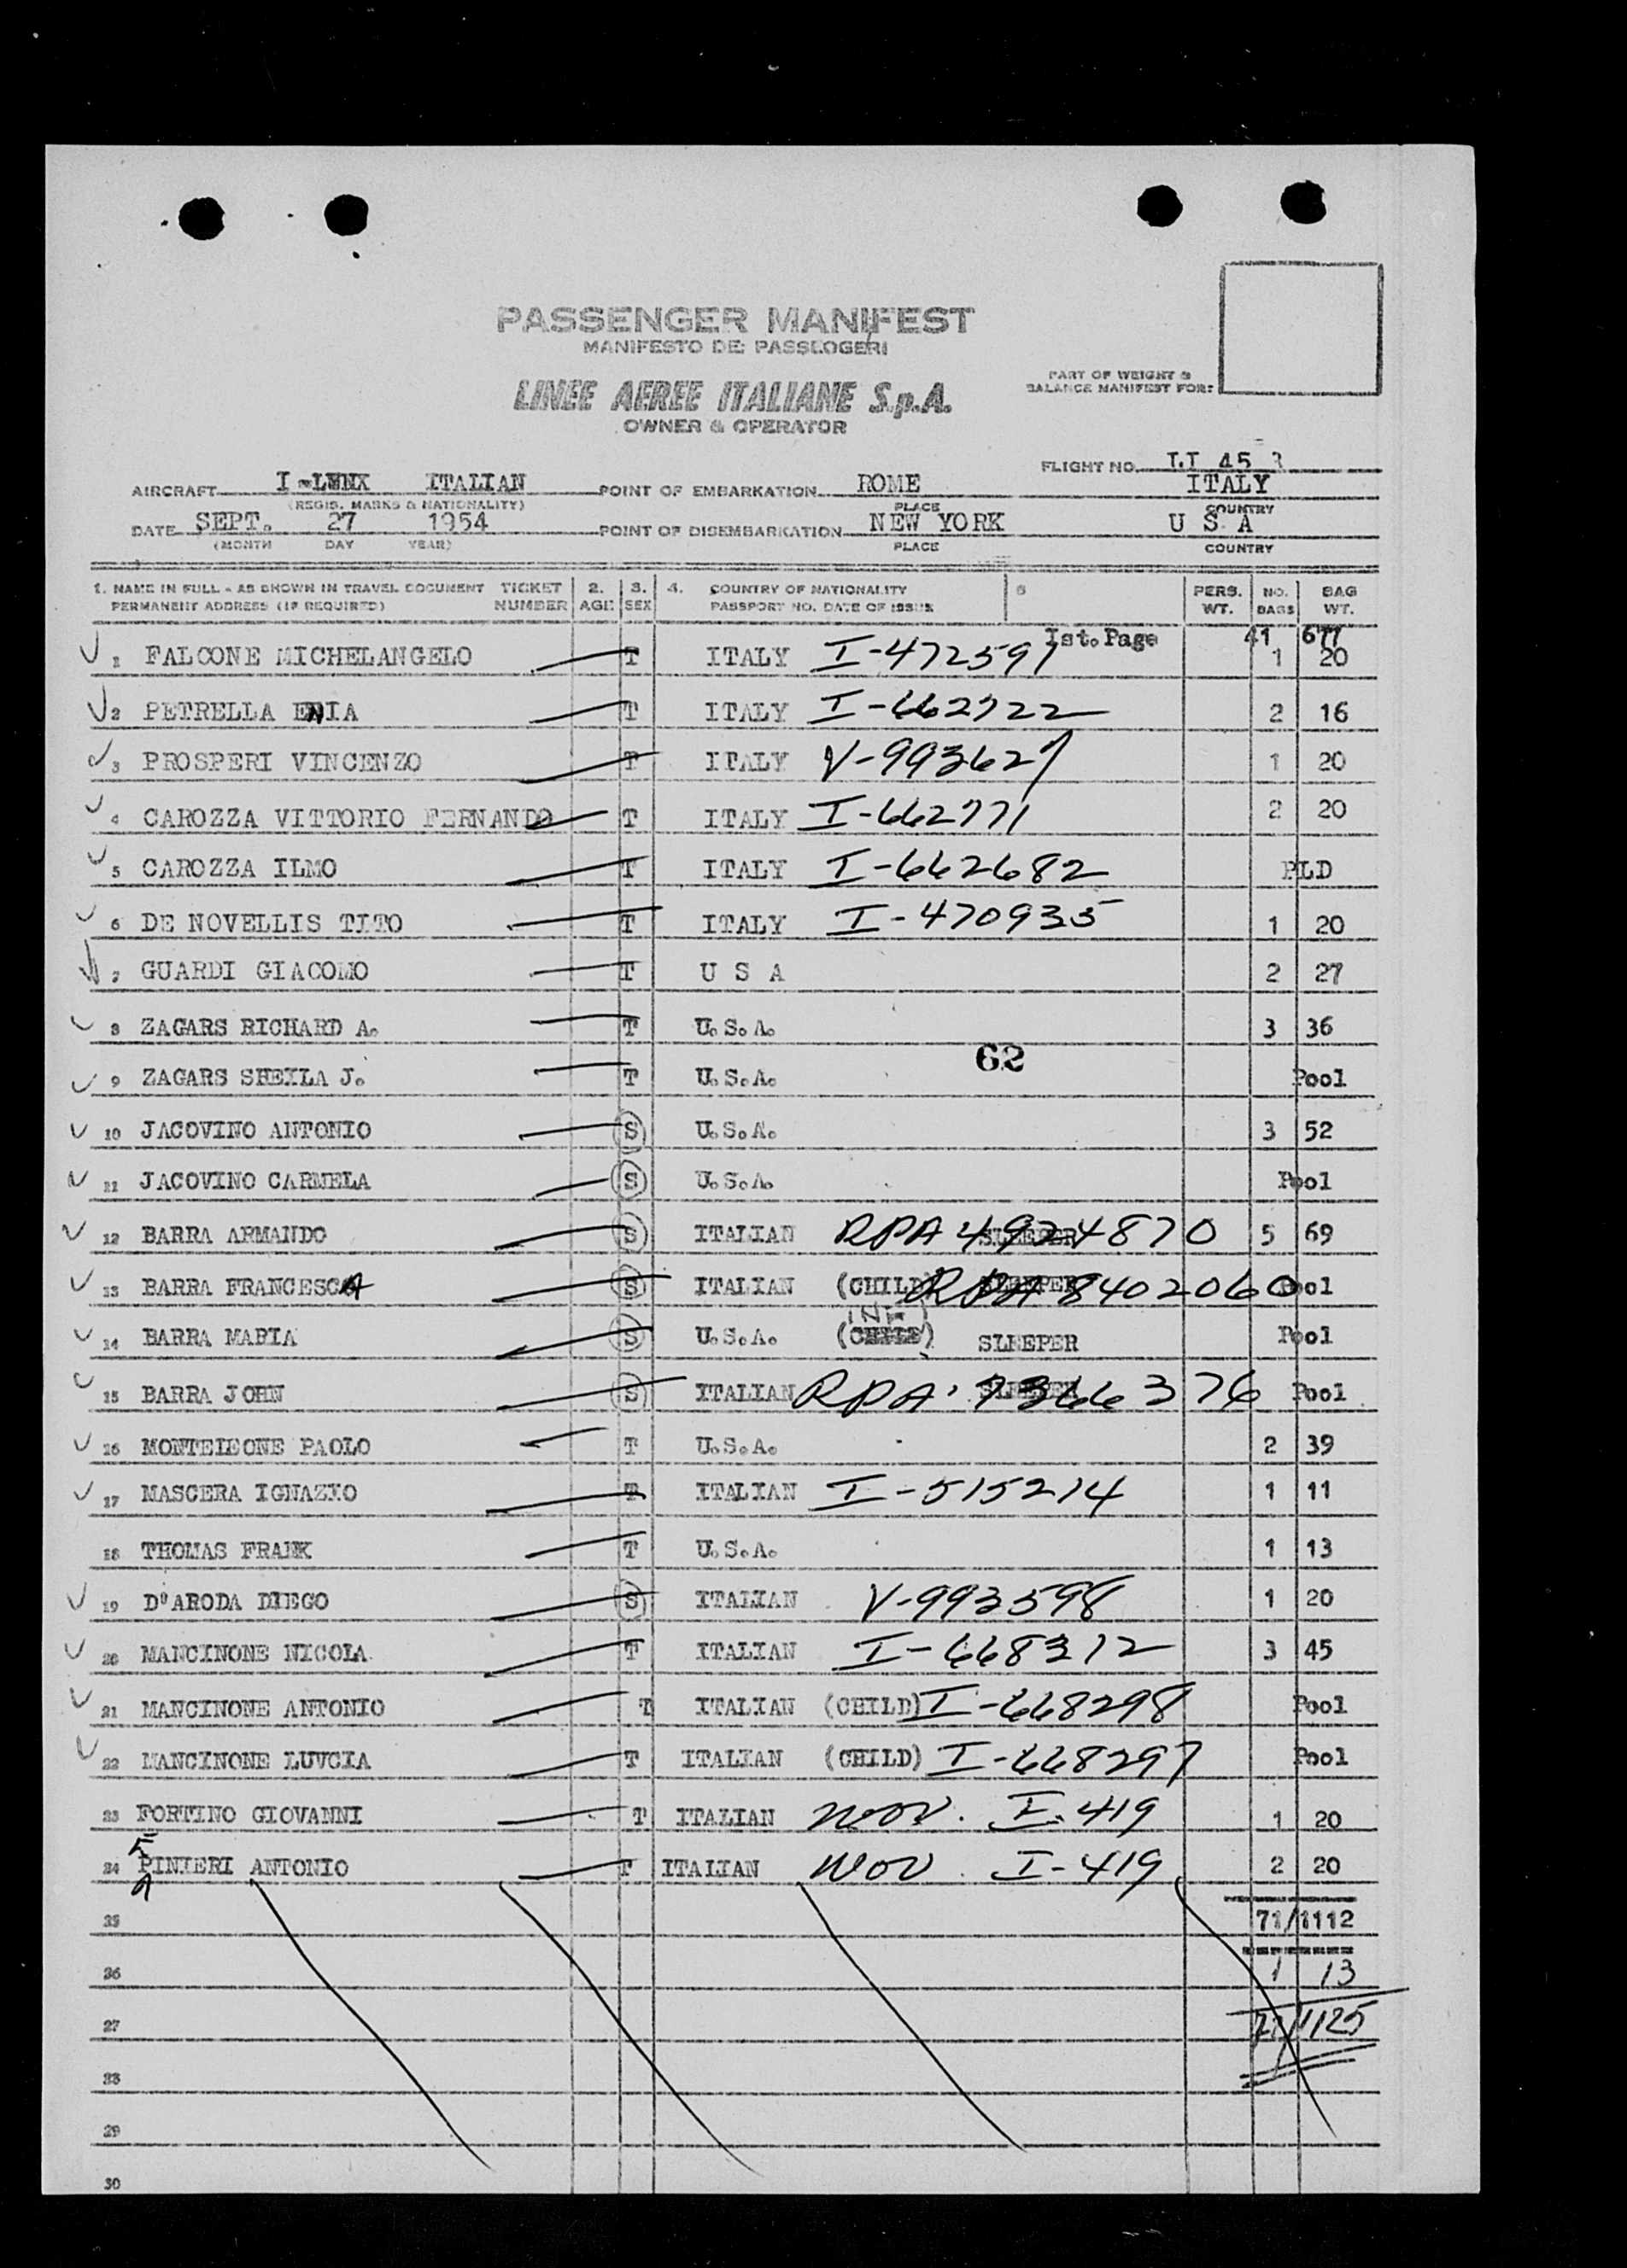 PASSENGER MANIFEST
MANIFESTO DEI PASSEGGERI
LINEE AEREE ITALIANE S.p.A.
OWNER & OPERATOR
PART OF WEIGHT &
BALANCE MANIFEST FOR:
FLIGHT NO. LI 453
AIRCRAFT ITALIAN POINT OF EMBARKATION ROME ITALY
(REGIS. MARKS & NATIONALITY) PLACE COUNTRY
DATE SEPT. 27 1954 POINT OF DISEMBARKATION NEW YORK U S A
(MONTH DAY YEAR) PLACE COUNTRY
1. NAME IN FULL - AS SHOWN IN TRAVEL DOCUMENT TICKET 2. 3. 4. COUNTRY OF NATIONALITY 6 PERS. NO. BAG
PERMANENT ADDRESS (IF REQUIRED) NUMBER AGE SEX PASSPORT NO. DATE OF ISSUE WT. BAGS WT.
Ist. Page 41 677
1 FALCONE MICHELANGELO T ITALY I-472591 1 20
2 PETRELLA ENIA T ITALY I-662722 2 16
3 PROSPERI VINCENZO T ITALY V-993627 1 20
4 CAROZZA VITTORIO FERNANDO T ITALY I-662771 2 20
5 CAROZZA ILMO T ITALY I-662682 PLD
6 DE NOVELLIS TITO T ITALY I-470935 1 20
7 GUARDI GIACOMO T U S A 2 27
8 ZAGARS RICHARD A. T U.S.A. 3 36
62
9 ZAGARS SHEILA J. T U.S.A. Pool
10 JACOVINO ANTONIO S U.S.A. 3 52
11 JACOVINO CARMELA S U.S.A. Pool
12 BARRA ARMANDO S ITALIAN RPA 4924870 SLEEPER 5 69
13 BARRA FRANCESCA S ITALIAN (CHILD) RPA 8402060 SLEEPER Pool
INF
14 BARRA MARIA S U.S.A. (CHILD) SLEEPER Pool
15 BARRA JOHN S ITALIAN RPA 7366376 SLEEPER Pool
16 MONTELEONE PAOLO T U.S.A. 2 39
17 MASCERA IGNAZIO T ITALIAN I-515214 1 11
18 THOMAS FRANK T U.S.A. 1 13
19 D'ARODA DIEGO S ITALIAN V-993598 1 20
20 MANCINONE NICOLA T ITALIAN I-668312 3 45
21 MANCINONE ANTONIO T ITALIAN (CHILD) I-668298 Pool
22 MANCINONE LUVCIA T ITALIAN (CHILD) I-668297 Pool
23 FORTINO GIOVANNI T ITALIAN NOV. I-419 1 20
24 PINIERI ANTONIO T ITALIAN NOV I-419 2 20
25 71/1112
26 1 13
27 72/1125
28
29
30